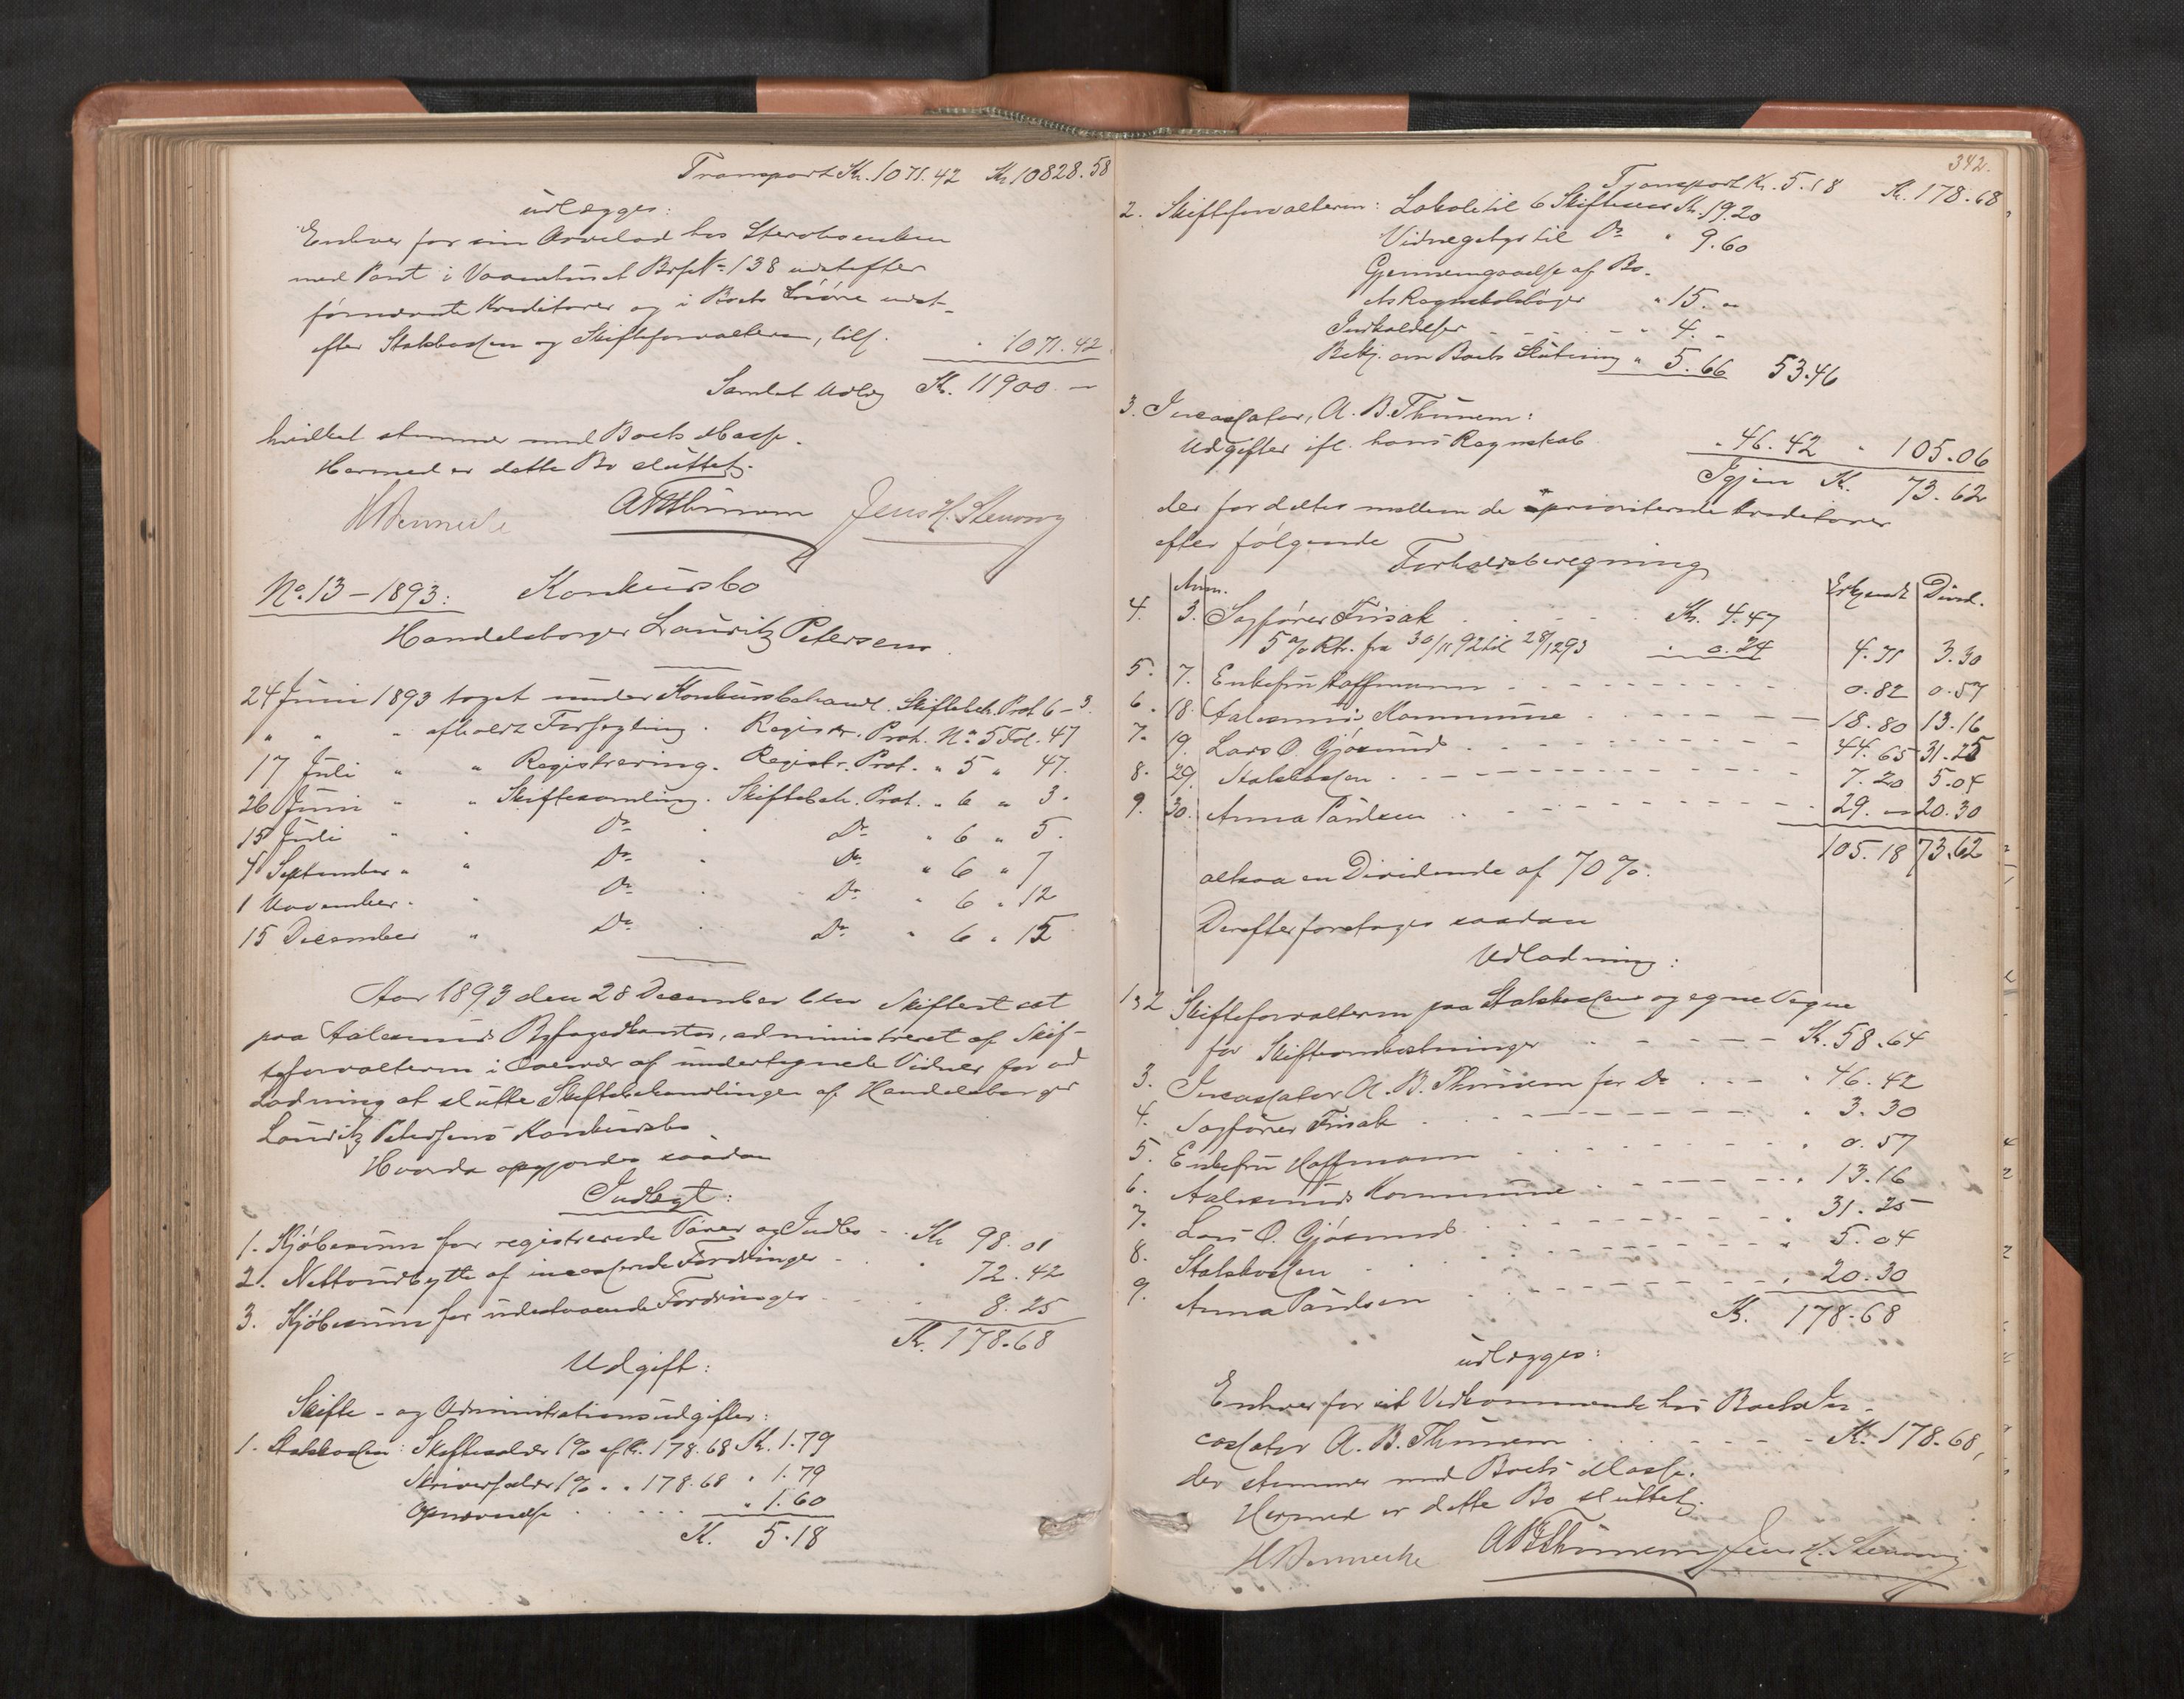 Transport Kr. 1071.42 Kr. 10828.58
udlægges:
Enhver for sin Arvelod hos Stervboenken
med Pant i Vaaningshuset Brf. No 138 udstefter
fornævnte Kreditorer og i Boets Løsøre udst-
efter Statskassen og Skifteforvalteren, tils. " 1071.42
Samlet Udlæg Kr. 11900 —
hvilket stemmer med Boets Masse.
Hermed er dette Bo sluttet.
A B Thunem Jens H. Stenvaag
No. 13 – 1893: Konkursbo
Handelsborger Lauritz Petersens.
24 Juni 1893 taget under Konkursbehandl. Skiftebeh. Prot 6 – 3.
" " " afholdt Forsegling. Registr. Prot. No 5 Fol. 47
17 Juli " " Registrering. Registr. Prot. " 5 " 47.
26 Juni " " Skiftesamling. Skiftebeh. Prot. " 6 " 3.
15 Juli " " Do " Do " 6 " 5.
4 September " " Do " Do " 6 " 7
1 November " " Do " Do " 6 " 12
15 December " Do " Do " 6 " 15
Aar 1893 den 28 December blev Skifteret sat
paa Aalesunds Byfogedkontor, administreret af Skif-
teforvalteren i Overvær af undertegnede Vidner for ved
Lodning at slutte Skiftebehandlingen af Handelsborger
Lauritz Petersens Konkursbo
Hvorda opgjordes saadan
Indtægt:
1. Kjøbesum for registrerede Varer og Indbo - Kr. 98.01
2. Nettoudbytte af incasserede Fordringer - " 72.42
3. Kjøbesum for udestaaende Fordringer - " 8.25
Kr. 178.68
Udgift:
Skifte- og Administrationsudgifter:
1. Statskassen: Skiftesalær 1% af Kr. 178.68 Kr. 1.79
Skriversalær 1% " " 178.68 " 1.79
Opnævnelse . . . . . " 1.60
Kr. 5.18
342.
Transport Kr. 5.18 Kr. 178.68
2. Skifteforvalteren: Lokale til 6 Skiftes. Kr. 19.20
Vidnegebyr til Do " 9.60
Gjennemgaaelse af Bo-
ets Regnskabsbøger " 15. "
Indkaldelser - - - - " 4. "
Bekj. om Boets Slutning " 5.66 53.46
3. Incassator, A. B. Thunem:
Udgifter ifl. hans Regnskab " 46.42 " 105.06
Igjen Kr. 73.62
der fordeltes mellem de uprioriterede Kreditorer
efter følgende
Forholdsberegning
Anm. Erkjendt Divid.
4. 3. Sagfører Frisak . . . . Kr. 4.47
5% Rtr. fra 30/11 92 til 28/12 93 " 0.24 4.71 3.30
5. 7. Enkefru Hoffmann - - - - 0.82 0.57
6. 18. Aalesunds Kommune - - - - 18.80 13.16
7. 19. Lars O. Gjøsund - - - - 44.65 31.25
8. 29. Statskassen - - - - 7.20 5.04
9. 30. Anna Paulsen - - - - 29. " 20.30
105.18 73.62
altsaa en Dividende af 70%.
Derefter foretages saadan
Udlodning:
1 & 2 Skifteforvalteren paa Statskassens og egne Vegne
for Skifteomkostninger - - - - Kr. 58.64
3. Incassator A. B. Thunem for Do - - - " 46.42
4. Sagfører Frisak - - - - " 3.30
5. Enkefru Hoffmann - - - - " 0.57
6. Aalesunds Kommune - - - - " 13.16
7. Lars O. Gjøsund - - - - " 31.25
8. Statskassen - - - - " 5.04
9. Anna Paulsen - - - - " 20.30
Kr. 178.68
udlægges:
Enhver for sit Vedkommende hos Boets In-
cassator A. B. Thunem - - - - Kr. 178.68,
der stemmer med Boets Masse.
Hermed er dette Bo sluttet.
A B Thunem Jens H. Stenvaag